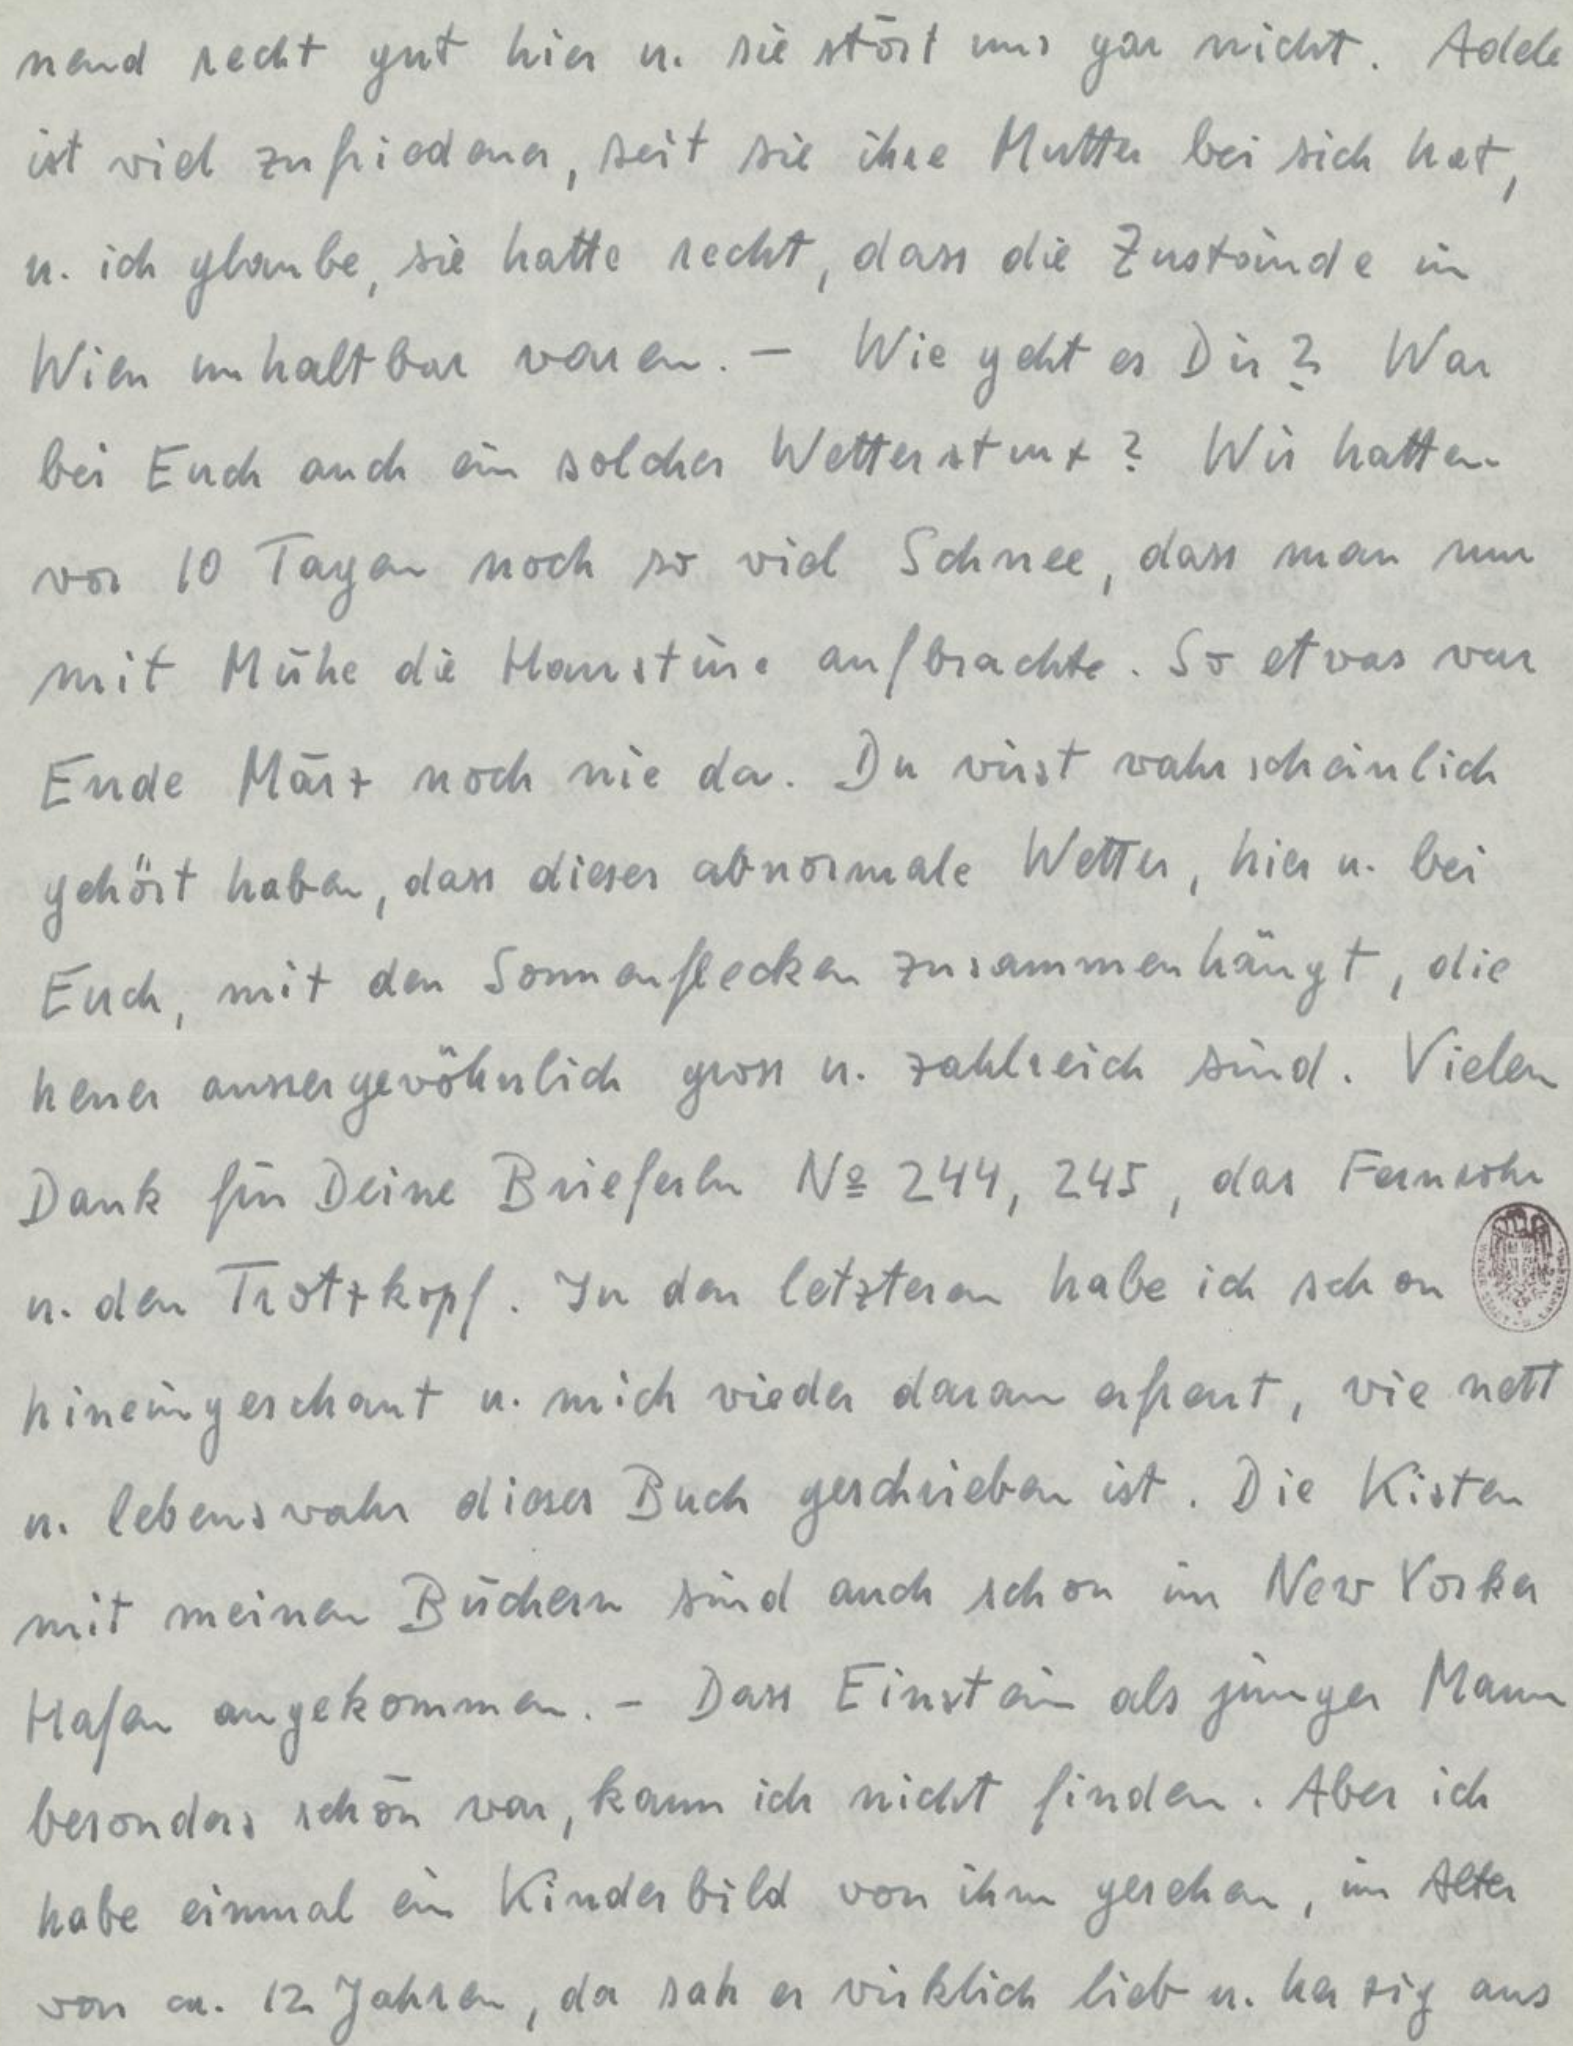 nend recht gut hier u. sie stört uns gar nicht. Adele
ist viel zufriedener, seit sie ihre Mutter bei sich hat,
u. ich glaube, sie hatte recht, dass die Zustände in
Wien unhaltbar waren. – Wie geht es Dir? War
bei Euch auch ein solcher Wettersturz? Wir hatten
vor 10 Tagen noch so viel Schnee, dass man nur
mit Mühe die Haustüre aufbrachte. So etwas war
Ende März noch nie da. Du wirst wahrscheinlich
gehört haben, dass dieses abnormale Wetter, hier u. bei
Euch, mit den Sonnenflecken zusammenhängt, die
heuer aussergewöhnlich gross u. zahlreich sind. Vielen
Dank für Deine Brieferln № 244, 245, das Fernrohr
u. den Trotzkopf. In den letzteren habe ich schon
hineingeschaut u. mich wieder daran erfreut, wie nett
u. lebenswahr dieses Buch geschrieben ist. Die Kisten
mit meinen Büchern sind auch schon im New Yorker
Hafen angekommen. – Dass Einstein als junger Mann
besonders schön war, kann ich nicht finden. Aber ich
habe einmal ein Kinderbild von ihm gesehen, im Alter
von ca. 12 Jahren, da sah er wirklich lieb u. herzig aus